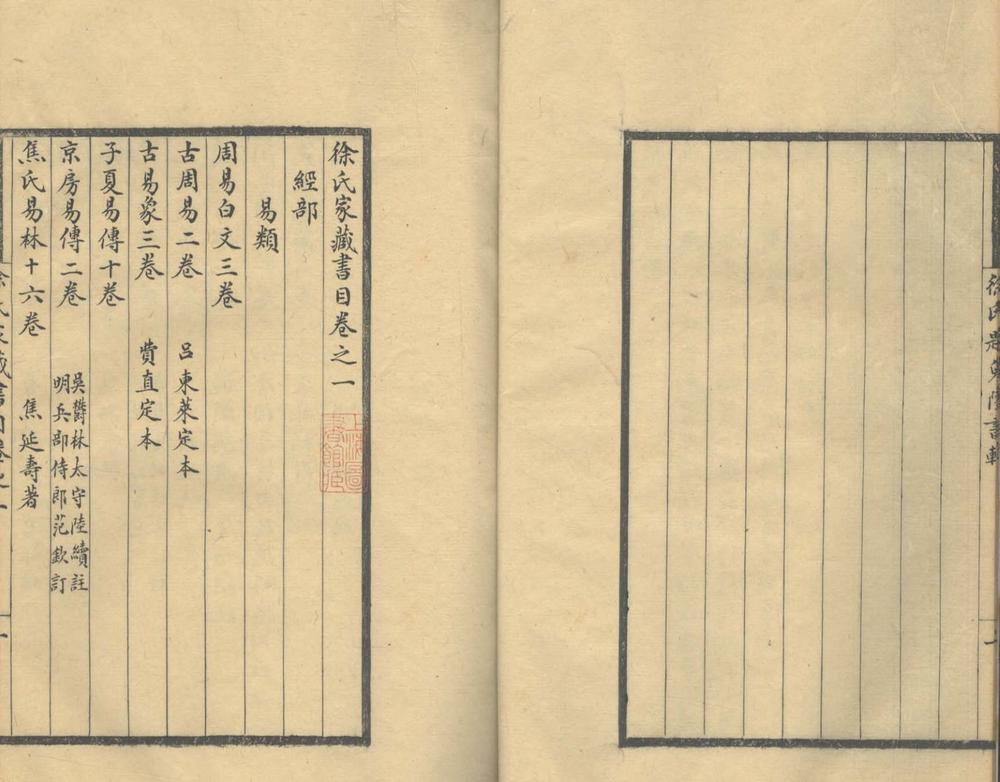 徐氏家藏書目卷之一
經部
易類
周易白文三卷
古周易二卷 呂東萊定本
古易彖三卷 費直定本
子夏易傳十卷
京房易傳二卷 吳欎林太守陸續註
明兵部侍郎范欽訂
焦氏易林十六卷 焦延壽著
徐氏家藏書目卷之一
上海圖書館藏